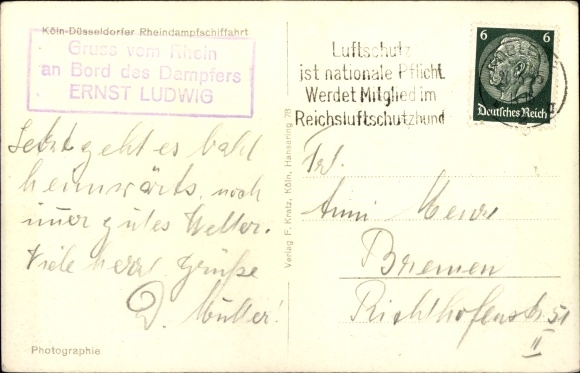 Köln-Düsseldorfer Rheindampfschiffahrt
Gruss vom Rhein
an Bord des Dampfers
ERNST LUDWIG
Luftschutz
ist nationale Pflicht
Werdet Mitglied im
Reichsluftschutzbund
6 6
Deutsches Reich
Jetzt geht es bald
heimwärts, noch
imer gutes Wetter.
Viele herzl Grüße
D. Mutter!
Verlag F. Kratz, Köln, Hansaring 78
Frl.
Anni
Bremen
Richthofenstr 51
II
Photographie